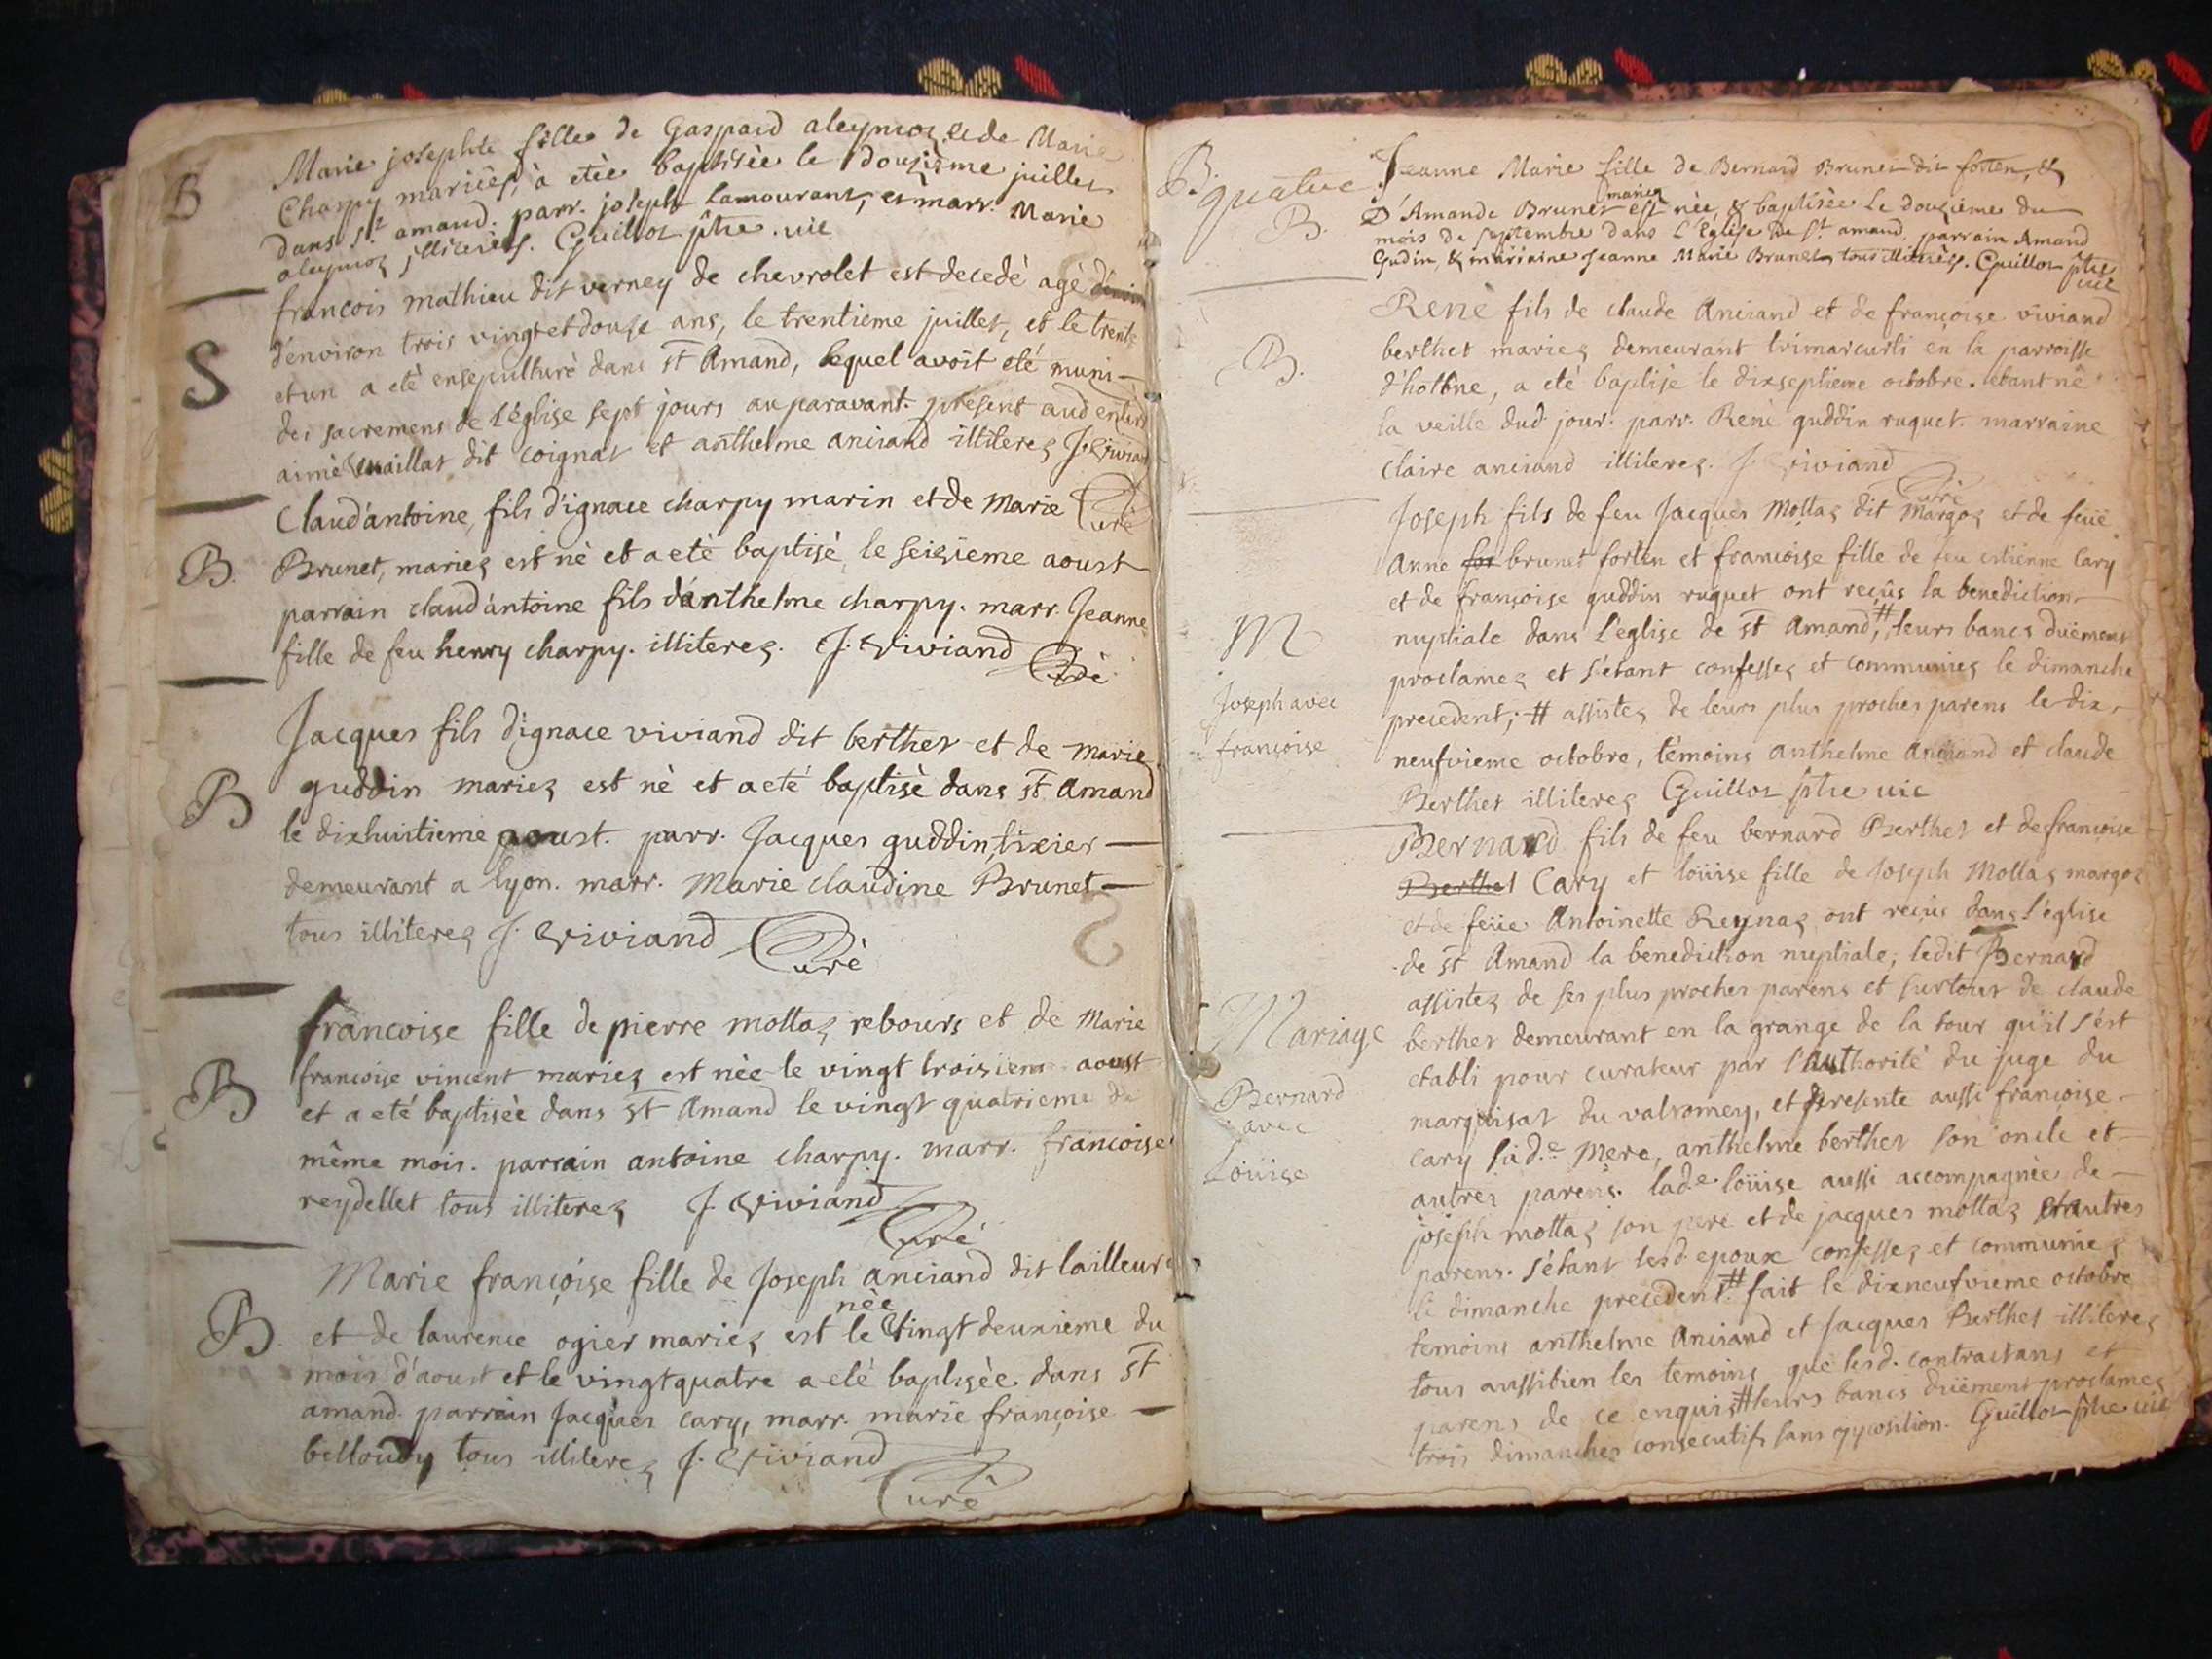 B
Marie josephte fille de Gaspard aleymoz et de Marie
Charpy mariées, à etée baptisée le douzieme juillet
dans st amand. parr. joseph Lamourant, et marr. Marie
aleymoz illiterés. Guilloz ptre. vic
S
francois mathieu dit verney de chevrolet est decedè agè
d'environ trois vingt et douse ans, le trentieme juillet, et le trente
et un a etè ensepulturè dans st Amand, lequel avoit eté muni
des sacremens de l'église sept jours au paravant. present aud enterr
aimé maillat dit coignat et anthelme anciand illiterez J. Viviand
Curè
B.
Claud'antoine, fils d'ignace charpy marin et de Marie
Brunet, mariez est nè et a etè baptisè, le seizieme aoust
parrain claud'antoine fils d'anthelme charpy. marr. Jeanne
fille de feu henry charpy. illiterez. J. Viviand
Curè
B
Jacques fils d'ignace viviand dit berthet et de marie
guddin mariez est nè et a eté baptisè dans st Amand
le dixhuitieme aoust. parr. Jacques guddin, tixier
demeurant a lyon. marr. Marie claudine Brunet
tous illiterez J. Viviand
Curè
B
francoise fille de pierre mottaz rebours et de Marie
francoise vincent mariez est nèe le vingt troisiem aoust
et a eté baptisèe dans st Amand le vingt quatrieme de
même mois. parrain antoine charpy. marr. francoise
reydellet tous illiterez J. Viviand
Curè
B.
Marie françoise fille de Joseph anciand dit lailleur
nèe
et de laurence ogier mariez est le vingt deuxieme du
mois d'aoust et le vingt quatre a eté baptisèe dans st
amand. parrain Jacques cary, marr. marie françoise
belloudy tous illiterez J. Viviand
Curè
B. quatre
B.
Jeanne Marie fille de Bernard Brunet dit forten, &
mariez
D'Amande Brunet est née, & baptisée Le douzieme du
mois de septembre dans L'Eglise de st amand. parrain Amand
Gudin, & marraine Jeanne Marie Brunet tous illiterés. Guilloz ptre
vic
B.
Renè fils de claude Anciand et de françoise viviand
berthet mariez demeurant trimarcurti en la parroisse
d'hotone, a eté baptisé le dixseptieme octobre. etant nê
la veille dud jour. parr. Renè guddin ruguet. marraine
Claire anciand illiterez. J. Viviand
Curè
M
Joseph avec
françoise
Joseph fils de feu Jacques Mottaz dit Margoz et de feüe
Anne for brunet forten et francoise fille de feu estienne Cary
et de françoise guddin ruguet ont reçûs la benediction
nuptiale dans l'eglise de st Amand,# leurs bancs düement
proclamez et s'etant confessez et communiez le dimanche
precedent; # assistez de leurs plus proches parens le dix
neufvieme octobre, témoins anthelme Anciand et claude
Berthet illiterez Guilloz ptre vic
Mariage
Bernard
avec
Loüise
Bernard fils de feu bernard Berthet et de françoise
Berthet Cary et loüise fille de Joseph Mottaz margoz
et de feüe Antoinette Reynaz ont reçûs dans l'église
de st Amand la benediction nuptiale, ledit Bernard
assistez de ses plus proches parens et surtout de claude
berthet demeurant en la grange de la tour qu'il s'est
etabli pour curateur par l'authorité du juge du
marquisat du valromey, et presente aussi françoise
cary sad.e Mere, anthelme berthet son oncle et
autres parens. lad.e loüise aussi accompagnée de
joseph mottaz son pere et de jacques mottaz et autres
parens. S'étant lesd. epoux confessez et communiez
le dimanche precedent# fait le dixneufvieme octobre
temoins anthelme Anciand et Jacques Berthet illiterez
tous aussibien les temoins que lesd. contractans et
parens de ce enquis# leurs bancs düement proclamez
trois dimanches consecutifs sans opposition. Guilloz ptre vic